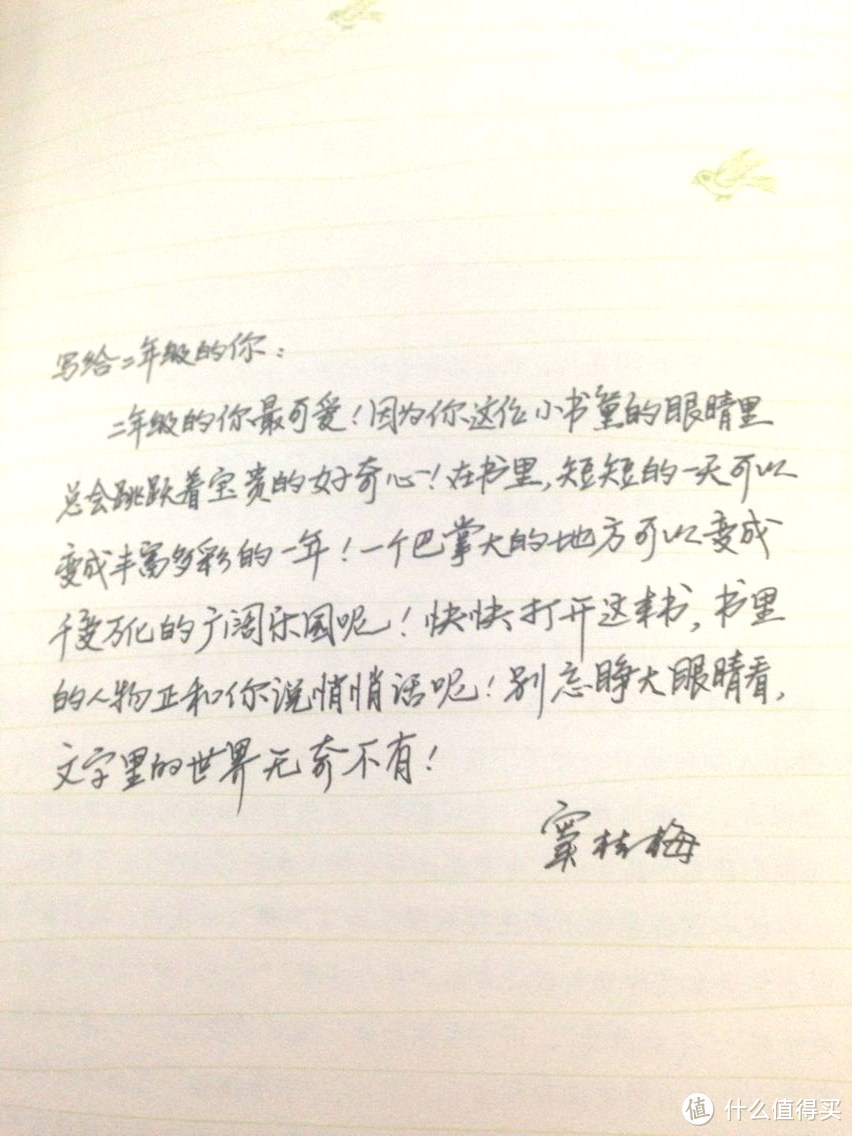 写给二年级的你：
二年级的你最可爱！因为你这位小书童的眼睛里
总会跳跃着宝贵的好奇心！在书里，短短的一天可以
变成丰富多彩的一年！一个巴掌大的地方可以变成
千变万化的广阔乐园呢！快快打开这本书，书里
的人物正和你说悄悄话呢！别忘睁大眼睛看，
文字里的世界无奇不有！
窦桂梅
值 什么值得买